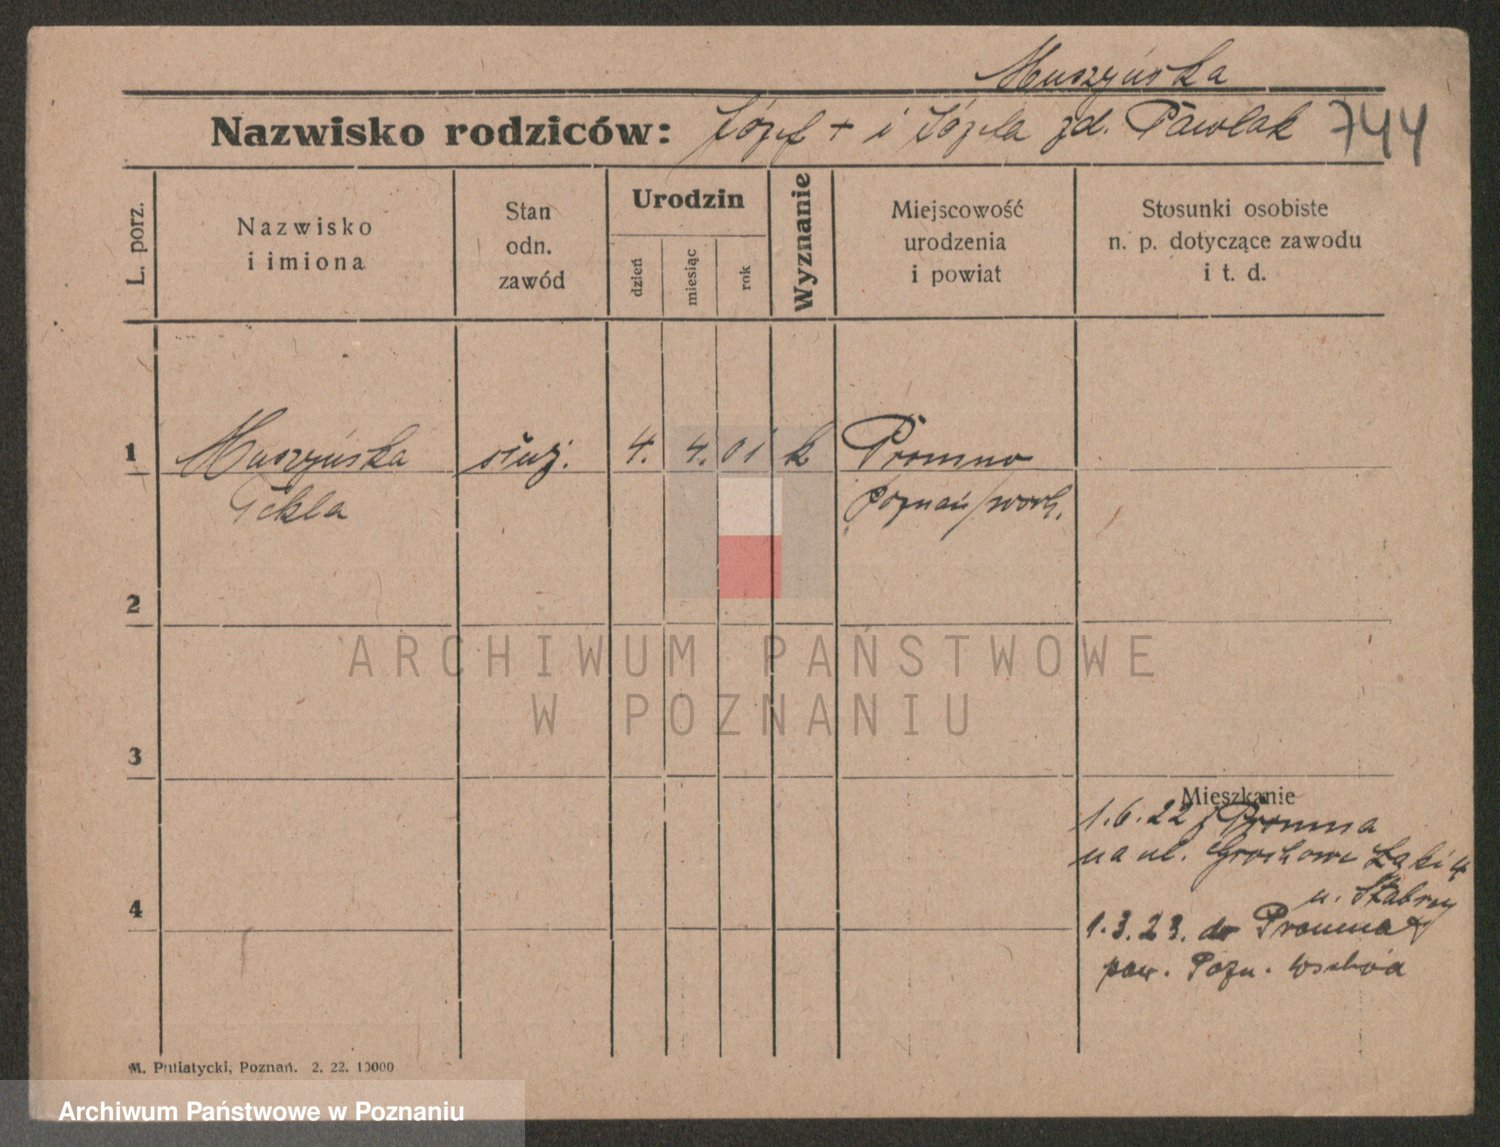 Muszyńska
Nazwisko rodziców: Józef + i Józefa zd. Pawlak 744
L. porz.
Nazwisko
i imiona
Stan
odn.
zawód
Urodzin
dzień
miesiąc
rok
Wyznanie
Miejscowość
urodzenia
i powiat
Stosunki osobiste
n. p. dotyczące zawodu
i t. d.
1 Muszyńska służ. 4. 4. 01 k Promno
Tekla Poznań/wsch.
2
3
Mieszkanie
1.6.22 z Promna
na ul. Grochowe Łąki 4
u. Stabrey
4
1.3.23. do Promna
pow. Pozn. wschód
M. Putiatycki, Poznań. 2. 22. 10000
ARCHIWUM PAŃSTWOWE
W POZNANIU
Archiwum Państwowe w Poznaniu